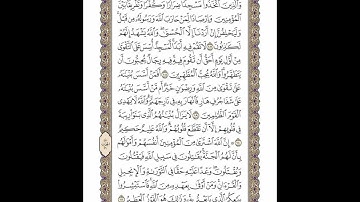 وَٱلَّذِينَ ٱتَّخَذُوا۟ مَسْجِدًا ضِرَارًا وَكُفْرًا وَتَفْرِيقًۢا بَيْنَ
ٱلْمُؤْمِنِينَ وَإِرْصَادًا لِّمَنْ حَارَبَ ٱللَّهَ وَرَسُولَهُۥ مِن قَبْلُ
وَلَيَحْلِفُنَّ إِنْ أَرَدْنَآ إِلَّا ٱلْحُسْنَىٰ وَٱللَّهُ يَشْهَدُ إِنَّهُمْ
لَكَٰذِبُونَ لَا تَقُمْ فِيهِ أَبَدًا لَّمَسْجِدٌ أُسِّسَ عَلَى ٱلتَّقْوَىٰ
مِنْ أَوَّلِ يَوْمٍ أَحَقُّ أَن تَقُومَ فِيهِ فِيهِ رِجَالٌ يُحِبُّونَ أَن
يَتَطَهَّرُوا۟ وَٱللَّهُ يُحِبُّ ٱلْمُطَّهِّرِينَ أَفَمَنْ أَسَّسَ بُنْيَٰنَهُۥ
عَلَىٰ تَقْوَىٰ مِنَ ٱللَّهِ وَرِضْوَٰنٍ خَيْرٌ أَم مَّنْ أَسَّسَ بُنْيَٰنَهُۥ
عَلَىٰ شَفَا جُرُفٍ هَارٍ فَٱنْهَارَ بِهِۦ فِى نَارِ جَهَنَّمَ وَٱللَّهُ لَا يَهْدِى
ٱلْقَوْمَ ٱلظَّٰلِمِينَ لَا يَزَالُ بُنْيَٰنُهُمُ ٱلَّذِى بَنَوْا۟ رِيبَةً
فِى قُلُوبِهِمْ إِلَّآ أَن تَقَطَّعَ قُلُوبُهُمْ وَٱللَّهُ عَلِيمٌ حَكِيمٌ
إِنَّ ٱللَّهَ ٱشْتَرَىٰ مِنَ ٱلْمُؤْمِنِينَ أَنفُسَهُمْ وَأَمْوَٰلَهُم
بِأَنَّ لَهُمُ ٱلْجَنَّةَ يُقَٰتِلُونَ فِى سَبِيلِ ٱللَّهِ فَيَقْتُلُونَ
وَيُقْتَلُونَ وَعْدًا عَلَيْهِ حَقًّا فِى ٱلتَّوْرَىٰةِ وَٱلْإِنجِيلِ
وَٱلْقُرْءَانِ وَمَنْ أَوْفَىٰ بِعَهْدِهِۦ مِنَ ٱللَّهِ فَٱسْتَبْشِرُوا۟
بِبَيْعِكُمُ ٱلَّذِى بَايَعْتُم بِهِۦ وَذَٰلِكَ هُوَ ٱلْفَوْزُ ٱلْعَظِيمُ